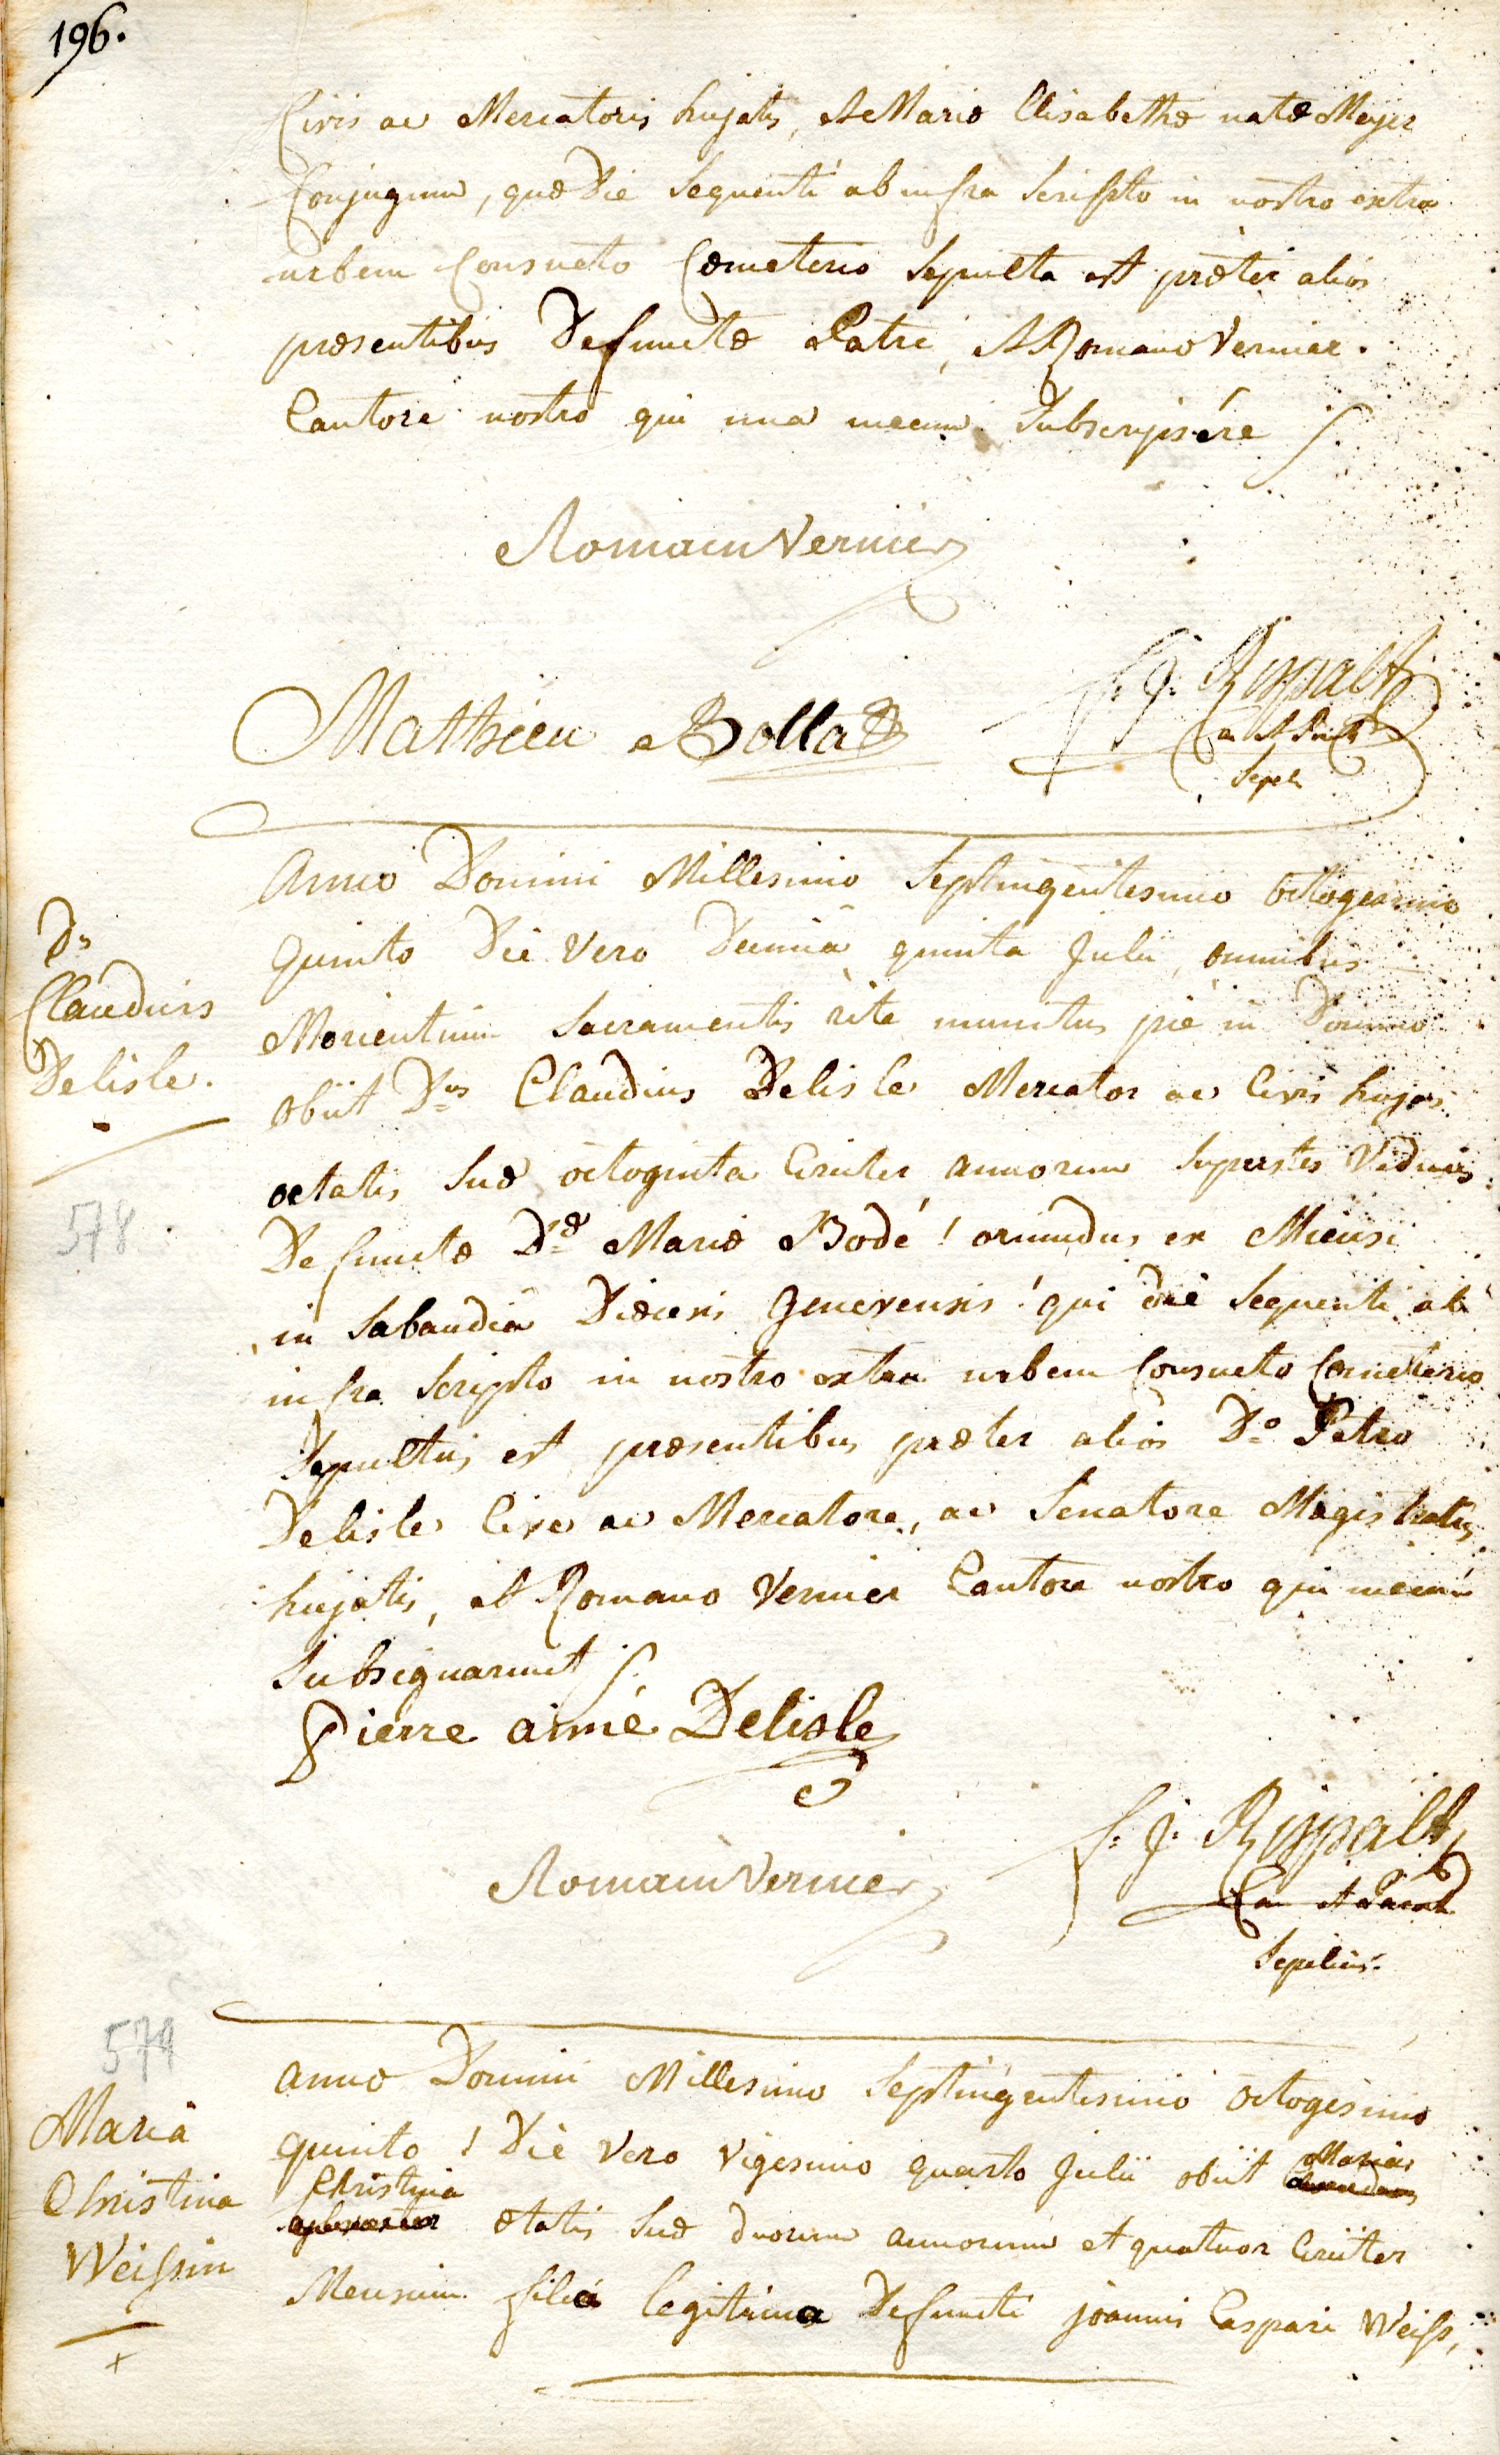 196.
Civis ac Mercatoris hujatis, et Mariæ Elisabethæ natæ Meyer
Conjugum, quæ Die Sequenti ab infra Scripto in nostro extra
urbem Consueto Cœmeterio Sepulta est præter alios
præsentibus Defunctæ Patre, et Romano Vernier.
Cantore nostro qui una mecum Subscripsére
Romain Vernier
Mathieu Bolla
f: J: Rippalt
Can et Par
Sepel:
Anno Domini Millesimo Septingentesimo octogesimo
Quinto Die Vero Decimâ quintâ Julii, omnibus
Morientium Sacramentis rite munitus piè in Domino
obiit Dnus Claudius Delisle Mercator ac Civis hujas
ætatis Suæ octoginta Circiter annorum Superstes Viduus
Defunctæ Dæ Mariæ Bodé! oriundus ex Mieusi
in Sabaudiâ Diœcesis Genevensis! qui die Sequenti ab
infra Scripto in nostro extra urbem Consueto Cœmeterio
Sepultus est præsentibus præter aliôs Do Petro
Delisle Cive ac Mercatore, ac Senatore Magistratus
hujatis, et Romano Vernier Cantore nostro qui mecum
Subsignarunt
Ds
Claudius
Delisle.
578
Pierre aimé Delisle
Romain Vernier
f: J: Rippalt
Can et Paroch
Sepeliens
Anno Domini Millesimo Septingentesimo octogesimo
quinto! Die Vero Vigesimo quarto Julii obiit Maria
Christina ætatis Suæ duorum annorum et quatuor Circiter
Mensium filia legitima Defuncti joannis Caspari Weiss,
579
Maria
Christina
Weissin
+